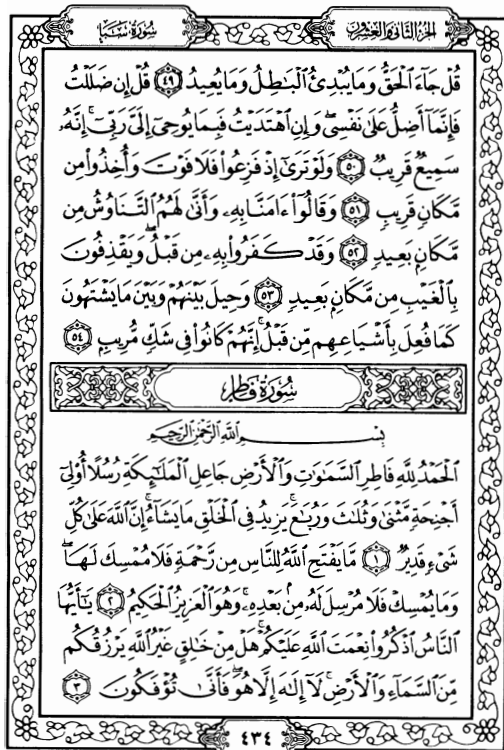 الجزء الثاني والعشرون
سورة سبأ
قُلْ جَآءَ ٱلْحَقُّ وَمَا يُبْدِئُ ٱلْبَٰطِلُ وَمَا يُعِيدُ ٤٩ قُلْ إِن ضَلَلْتُ
فَإِنَّمَآ أَضِلُّ عَلَىٰ نَفْسِىۖ وَإِنِ ٱهْتَدَيْتُ فَبِمَا يُوحِىٓ إِلَىَّ رَبِّىٓۚ إِنَّهُۥ
سَمِيعٌ قَرِيبٌ ٥٠ وَلَوْ تَرَىٰٓ إِذْ فَزِعُوا۟ فَلَا فَوْتَ وَأُخِذُوا۟ مِن
مَّكَانٍ قَرِيبٍ ٥١ وَقَالُوٓا۟ ءَامَنَّا بِهِۦ وَأَنَّىٰ لَهُمُ ٱلتَّنَاوُشُ مِن
مَّكَانٍۭ بَعِيدٍ ٥٢ وَقَدْ كَفَرُوا۟ بِهِۦ مِن قَبْلُۖ وَيَقْذِفُونَ
بِٱلْغَيْبِ مِن مَّكَانٍۭ بَعِيدٍ ٥٣ وَحِيلَ بَيْنَهُمْ وَبَيْنَ مَا يَشْتَهُونَ
كَمَا فُعِلَ بِأَشْيَاعِهِم مِّن قَبْلُۚ إِنَّهُمْ كَانُوا۟ فِى شَكٍّ مُّرِيبٍۭ ٥٤
سورة فاطر
بِسْمِ ٱللَّهِ ٱلرَّحْمَٰنِ ٱلرَّحِيمِ
ٱلْحَمْدُ لِلَّهِ فَاطِرِ ٱلسَّمَٰوَٰتِ وَٱلْأَرْضِ جَاعِلِ ٱلْمَلَٰٓئِكَةِ رُسُلًا أُو۟لِىٓ
أَجْنِحَةٍ مَّثْنَىٰ وَثُلَٰثَ وَرُبَٰعَۚ يَزِيدُ فِى ٱلْخَلْقِ مَا يَشَآءُۚ إِنَّ ٱللَّهَ عَلَىٰ كُلِّ
شَىْءٍ قَدِيرٌ ١ مَّا يَفْتَحِ ٱللَّهُ لِلنَّاسِ مِن رَّحْمَةٍ فَلَا مُمْسِكَ لَهَاۖ
وَمَا يُمْسِكْ فَلَا مُرْسِلَ لَهُۥ مِنۢ بَعْدِهِۦۚ وَهُوَ ٱلْعَزِيزُ ٱلْحَكِيمُ ٢ يَٰٓأَيُّهَا
ٱلنَّاسُ ٱذْكُرُوا۟ نِعْمَتَ ٱللَّهِ عَلَيْكُمْۚ هَلْ مِنْ خَٰلِقٍ غَيْرُ ٱللَّهِ يَرْزُقُكُم
مِّنَ ٱلسَّمَآءِ وَٱلْأَرْضِۚ لَآ إِلَٰهَ إِلَّا هُوَۖ فَأَنَّىٰ تُؤْفَكُونَ ٣
٤٣٤